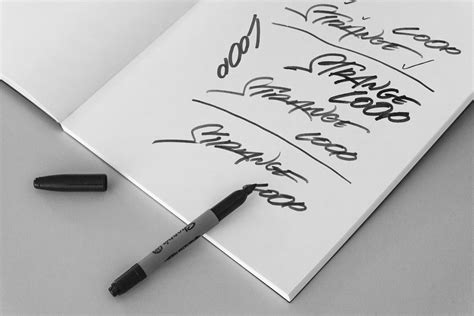 STRANGE LOOP
LOOP
STRANGE
LOOP
STRANGE LOOP
STRANGE
LOOP
Sharpie